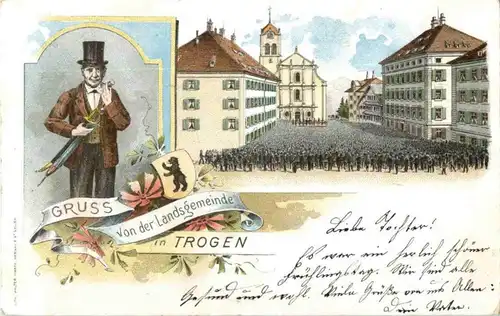 GRUSS
von der Landsgemeinde
in TROGEN
Liebe Tochter!
Es war ein herlich schöner
Frühlingstag. Wir sind alle
Gesund und wohl. Viele Grüße von uns Allen:
Dein Vater.